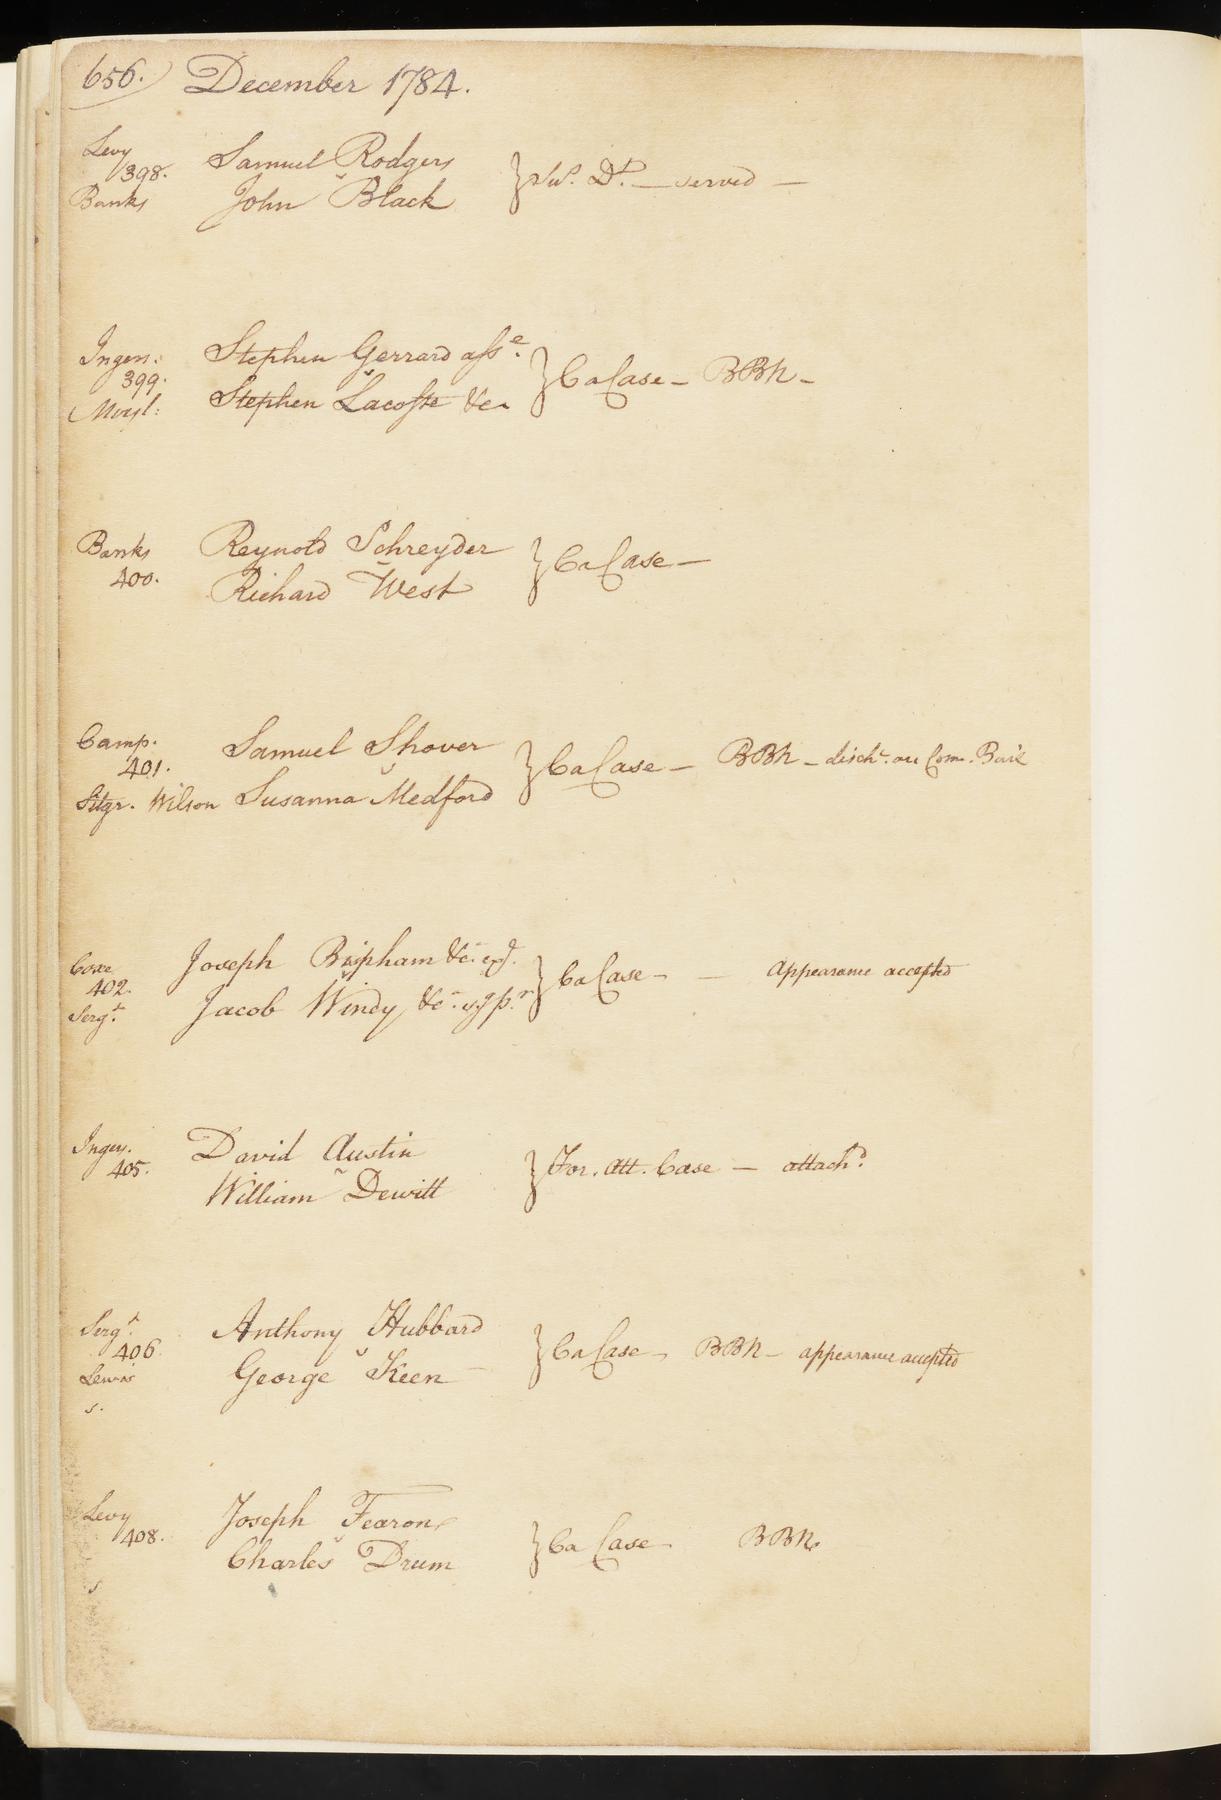 656. December 1784.
Levy Samuel Rodgers
398. } Su.s D.t — served —
Banks John Black
Ingers. Stephen Gerrard asse.
399. } Ca Case — BBN —
Moyl: Stephen Lacoste &c
Banks Reynold Schreyder
400. } Ca Case —
Richard West
Camp. Samuel Shover
401. } Ca Case — BBN — disch.d on Com. Bail
Sitgr. Wilson Susanna Medford
Coxe Joseph Bispham &c.
402. } Ca Case — — Appearance accepted
Serg.t Jacob Windy &c.
Ingers. David Austin
405. } For. Att. Case — attach.d
William Dewitt
Serg.t Anthony Hubbard
406 } Ca Case — BBN — appearance accepted
Lewis George Keen
s.
Levy Joseph Fearon
408. } Ca Case BBN.
Charles Drum
s